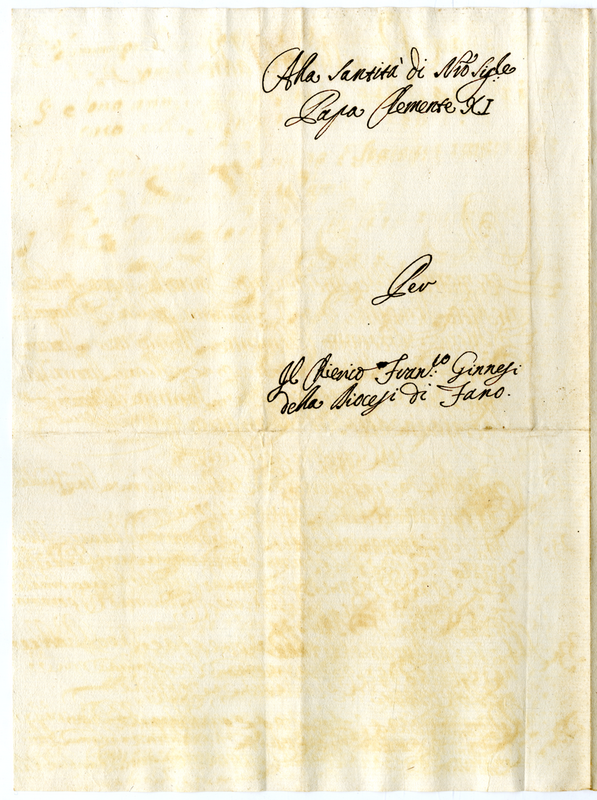 Alla Santità di Nro Sigre
Papa Clemente XI
Per
Il Chierico Fran.co Ginnesi
della Diocesi di Fano.